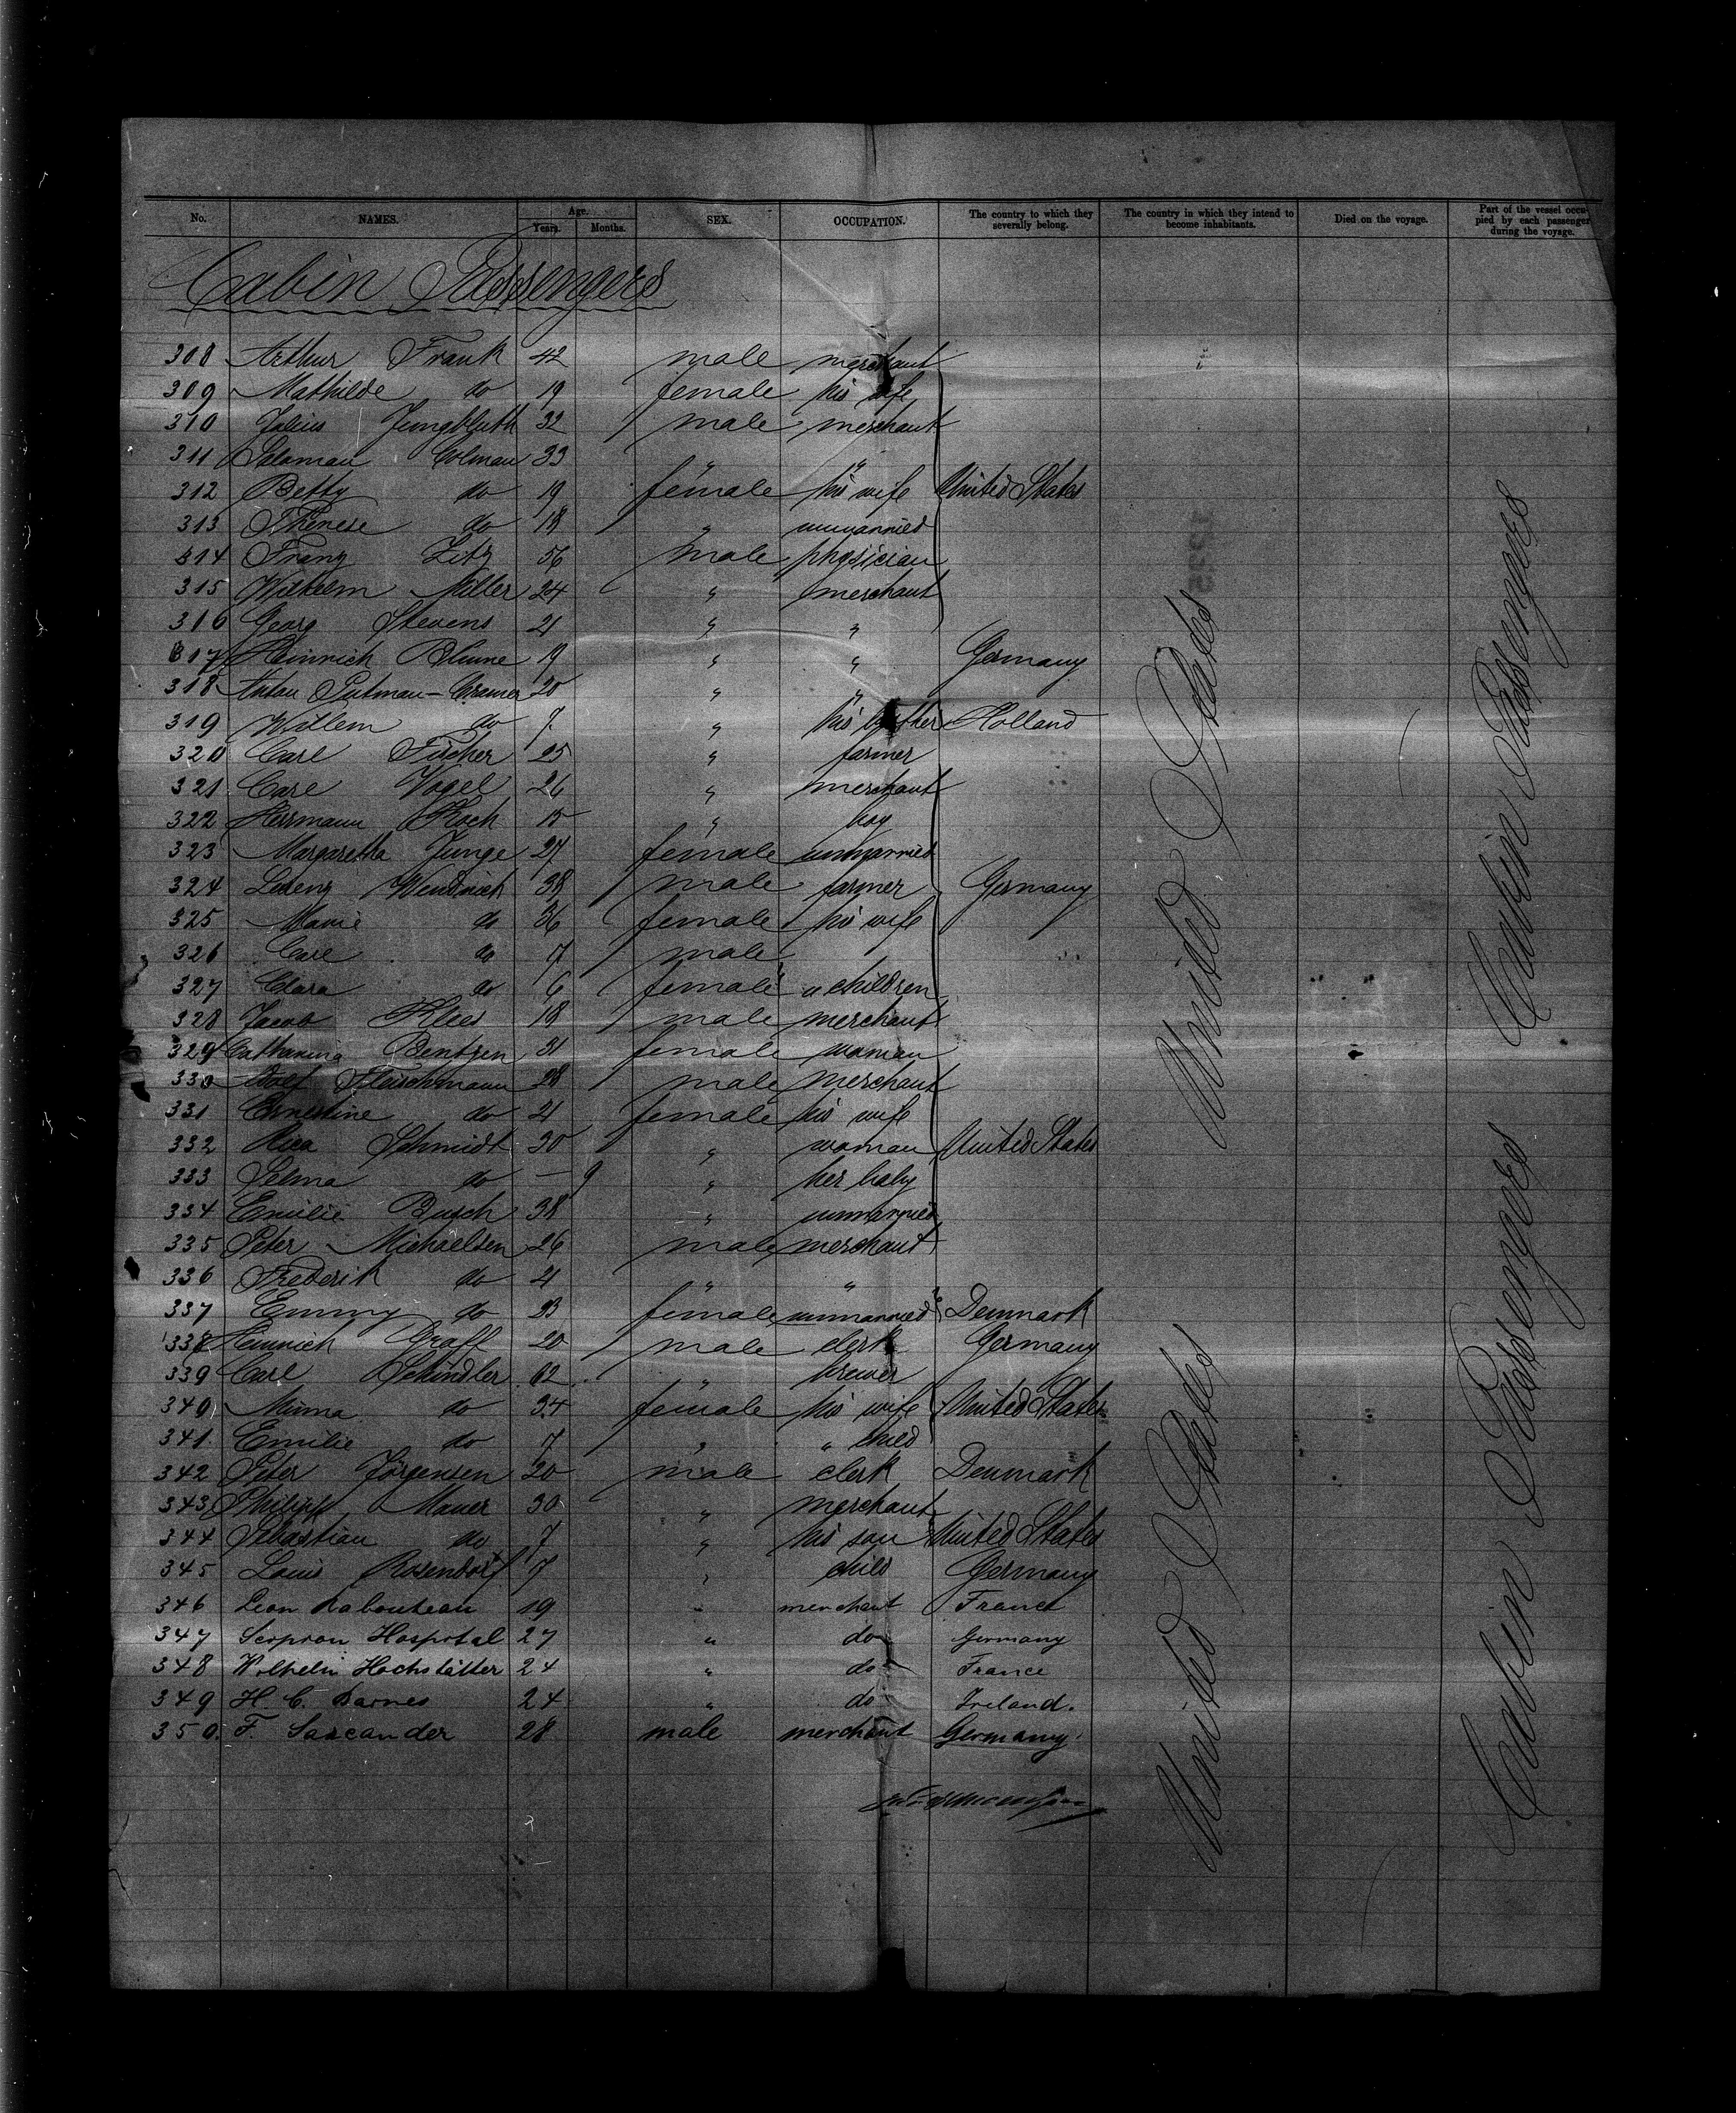 No. NAMES. Age. Years. Months. SEX. OCCUPATION. The country to which they severally belong. The country in which they intend to become inhabitants. Died on the voyage. Part of the vessel occupied by each passenger during the voyage.
Cabin Passengers
308 Arthur Frank 42 male merchant
309 Mathilde do 19 female his wife
310 Julius Jungbluth 32 male merchant
311 Salomon Colman 33 " "
312 Betty do 19 female his wife United States
313 Therese do 18 " unmarried
314 Franz Litz 56 male physician
315 Wilhelm Miller 24 " merchant
316 Georg Stevens 21 " "
317 Heinrich Blume 19 " " Germany
318 Anton Putman-Cramer 20 " "
319 Willem do 7 " his brother Holland
320 Carl Fischer 25 " farmer
321 Carl Vogel 26 " merchant
322 Herrmann Koch 15 " boy
323 Margaretha Junge 27 female unmarried
324 Lorenz Wendrich 38 male farmer Germany
325 Marie do 36 female his wife
326 Carl do 7 male
327 Clara do 6 female " children
328 Jacob Klees 18 male merchant
329 Catharina Bentzen 31 female woman
330 Adolf Fleischmann 28 male merchant
331 Ernestine do 21 female his wife
332 Rica Schmidt 30 " woman United States
333 Selma do — 9 " her baby
334 Emilie Busch 38 " unmarried
335 Peter Michaelsen 26 male merchant
336 Frederik do 21 " "
337 Emmy do 23 female unmarried Denmark
338 Heinrich Graff 20 male clerk Germany
339 Carl Schindler 62 " brewer
340 Minna do 34 female his wife United States
341 Emilie do 7 " " child
342 Peter Jörgensen 20 male clerk Denmark
343 Philipp Mauer 30 " merchant
344 Sebastian do 7 " his son United States
345 Louis Rosendorf 7 " child Germany
346 Leon Rabouteau 19 " merchant France
347 Scipion Hospital 27 " do Germany
348 Wilhelm Hochstätter 24 " do France
349 H. C. Barnes 24 " do Ireland.
350. F. Sascander 28 male merchant Germany
United States
United States
Cabin Passengers
Cabin Passengers